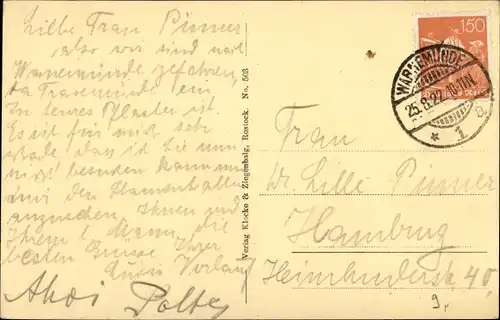 Liebe Frau Pinner
also wir sind nach
Warnemünde gefahren,
da Travemünde ein
zu teures Pflaster ist.
Es ist für mich sehr
schade, dass ich Sie nun
nicht besuchen kann um
mir den
anzusehen. Ihnen und
Ihrem l. Mann die
besten Grüsse Ihrer
Ahoi
Verlag Klocke & Ziegenbalg, Rostock. No. 503
150
WARNEMÜNDE
25.8.22. 10-11N.
* 1
Frau
Lilli Pinner
Hamburg
Heimhuderstr. 40
9.